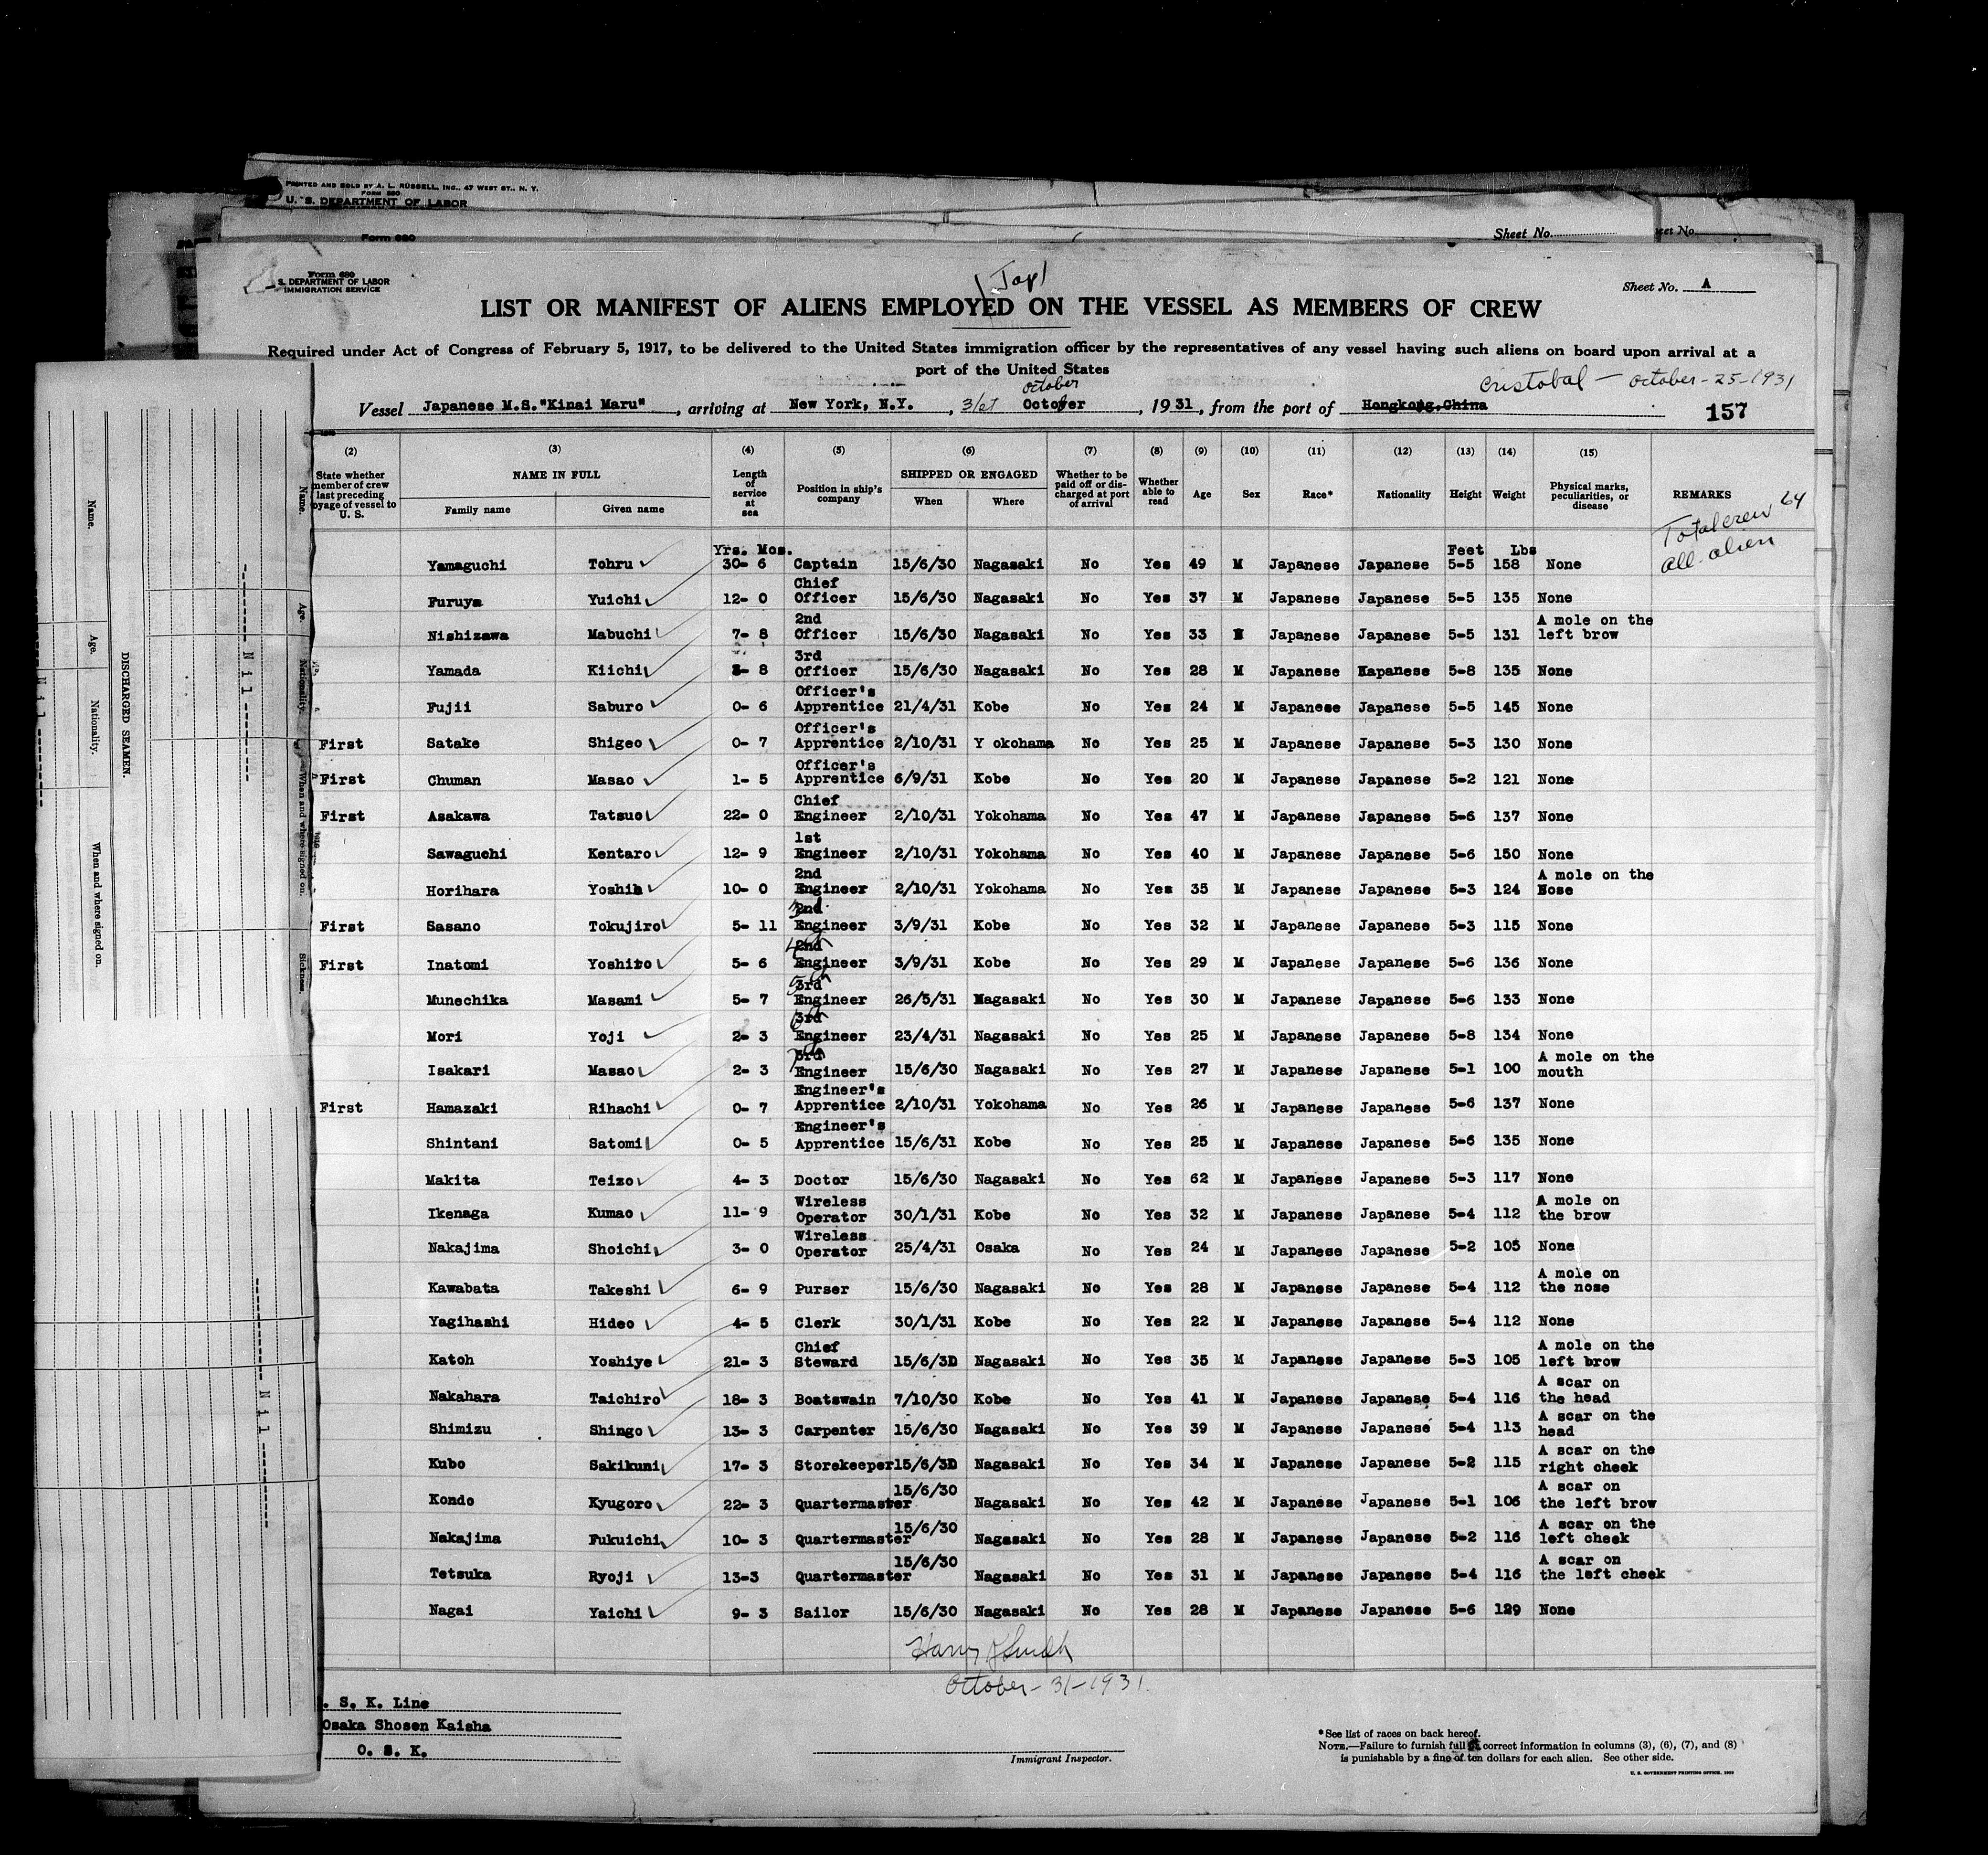 PRINTED AND SOLD BY A. L. RUSSELL, INC., 47 WEST ST., N. Y.
FORM 680
U. S. DEPARTMENT OF LABOR
Form 680
Sheet No.
eet No.
Form 680
S. DEPARTMENT OF LABOR
IMMIGRATION SERVICE
Jap
Sheet No. A
LIST OR MANIFEST OF ALIENS EMPLOYED ON THE VESSEL AS MEMBERS OF CREW
Required under Act of Congress of February 5, 1917, to be delivered to the United States immigration officer by the representatives of any vessel having such aliens on board upon arrival at a
port of the United States
October
Cristobal - October-25-1931
Vessel Japanese M.S."Kinai Maru", arriving at New York, N.Y., 31st October, 1931, from the port of Hongkong, China
157
(2) (3) (4) (5) (6) (7) (8) (9) (10) (11) (12) (13) (14) (15)
State whether member of crew last preceding oyage of vessel to U. S.
NAME IN FULL
Family name Given name
Length of service at sea
Position in ship's company
SHIPPED OR ENGAGED
When Where
Whether to be paid off or discharged at port of arrival
Whether able to read
Age Sex Race* Nationality Height Weight
Physical marks, peculiarities, or disease
REMARKS
Total crew 64
All alien
Yrs. Mos. Feet Lbs
Yamaguchi Tohru 30- 6 Captain 15/6/30 Nagasaki No Yes 49 M Japanese Japanese 5-5 158 None
Furuya Yuichi 12- 0 Chief Officer 15/6/30 Nagasaki No Yes 37 M Japanese Japanese 5-5 135 None
Nishizawa Mabuchi 7- 8 2nd Officer 15/6/30 Nagasaki No Yes 33 M Japanese Japanese 5-5 131 A mole on the left brow
Yamada Kiichi 8 3rd Officer 15/6/30 Nagasaki No Yes 28 M Japanese Japanese 5-8 135 None
Fujii Saburo 0- 6 Officer's Apprentice 21/4/31 Kobe No Yes 24 M Japanese Japanese 5-5 145 None
First Satake Shigeo 0- 7 Officer's Apprentice 2/10/31 Y okohama No Yes 25 M Japanese Japanese 5-3 130 None
First Chuman Masao 1- 5 Officer's Apprentice 6/9/31 Kobe No Yes 20 M Japanese Japanese 5-2 121 None
First Asakawa Tatsuo 22- 0 Chief Engineer 2/10/31 Yokohama No Yes 47 M Japanese Japanese 5-6 137 None
Sawaguchi Kentaro 12- 9 1st Engineer 2/10/31 Yokohama No Yes 40 M Japanese Japanese 5-6 150 None
Horihara 10- 0 2nd Engineer 2/10/31 Yokohama No Yes 35 M Japanese Japanese 5-3 124 A mole on the Nose
First Sasano Tokujiro 5- 11 3d 2nd Engineer 3/9/31 Kobe No Yes 32 M Japanese Japanese 5-3 115 None
First Inatomi Yoshiro 5- 6 4th 2nd Engineer 3/9/31 Kobe No Yes 29 M Japanese Japanese 5-6 136 None
Munechika Masami 5- 7 5th 3rd Engineer 26/5/31 Nagasaki No Yes 30 M Japanese Japanese 5-6 133 None
Mori Yoji 2- 3 6th 3rd Engineer 23/4/31 Nagasaki No Yes 25 M Japanese Japanese 5-8 134 None
Isakari Masao 2- 3 7th 3rd Engineer 15/6/30 Nagasaki No Yes 27 M Japanese Japanese 5-1 100 A mole on the mouth
First Hamazaki Rihachi 0- 7 Engineer's Apprentice 2/10/31 Yokohama No Yes 26 M Japanese Japanese 5-6 137 None
Shintani Satomi 0- 5 Engineer's Apprentice 15/6/31 Kobe No Yes 25 M Japanese Japanese 5-6 135 None
Makita Teizo 4- 3 Doctor 15/6/30 Nagasaki No Yes 62 M Japanese Japanese 5-3 117 None
Ikenaga Kumao 11- 9 Wireless Operator 30/1/31 Kobe No Yes 32 M Japanese Japanese 5-4 112 A mole on the brow
Nakajima Shoichi 3- 0 Wireless Operator 25/4/31 Osaka No Yes 24 M Japanese Japanese 5-2 105 None
Kawabata Takeshi 6- 9 Purser 15/6/30 Nagasaki No Yes 28 M Japanese Japanese 5-4 112 A mole on the nose
Yagihashi Hideo 4- 5 Clerk 30/1/31 Kobe No Yes 22 M Japanese Japanese 5-4 112 None
Katoh Yoshiye 21- 3 Chief Steward 15/6/30 Nagasaki No Yes 35 M Japanese Japanese 5-3 105 A mole on the left brow
Nakahara Taichiro 18- 3 Boatswain 7/10/30 Kobe No Yes 41 M Japanese Japanese 5-4 116 A scar on the head
Shimizu Shingo 13- 3 Carpenter 15/6/30 Nagasaki No Yes 39 M Japanese Japanese 5-4 113 A scar on the head
Kubo Sakikuni 17- 3 Storekeeper 15/6/30 Nagasaki No Yes 34 M Japanese Japanese 5-2 115 A scar on the right cheek
Kondo Kyugoro 22- 3 Quartermaster 15/6/30 Nagasaki No Yes 42 M Japanese Japanese 5-1 106 A scar on the left brow
Nakajima Fukuichi 10- 3 Quartermaster 15/6/30 Nagasaki No Yes 28 M Japanese Japanese 5-2 116 A scar on the left cheek
Tetsuka Ryoji 13-3 Quartermaster 15/6/30 Nagasaki No Yes 31 M Japanese Japanese 5-4 116 A scar on the left cheek
Nagai Yaichi 9- 3 Sailor 15/6/30 Nagasaki No Yes 28 M Japanese Japanese 5-6 129 None
Harry J Smith
October-31-1931
. S. K. Line
Osaka Shosen Kaisha
O. S. K.
Immigrant Inspector.
*See list of races on back hereof.
NOTE.—Failure to furnish full correct information in columns (3), (6), (7), and (8)
is punishable by a fine of ten dollars for each alien. See other side.
U. S. GOVERNMENT PRINTING OFFICE
DISCHARGED SEAMEN.
Name.
Age.
Nationality.
When and where signed on.
Nil
Name.
Age.
Nationality.
When and where signed on.
Sickness.
Nil
Nil